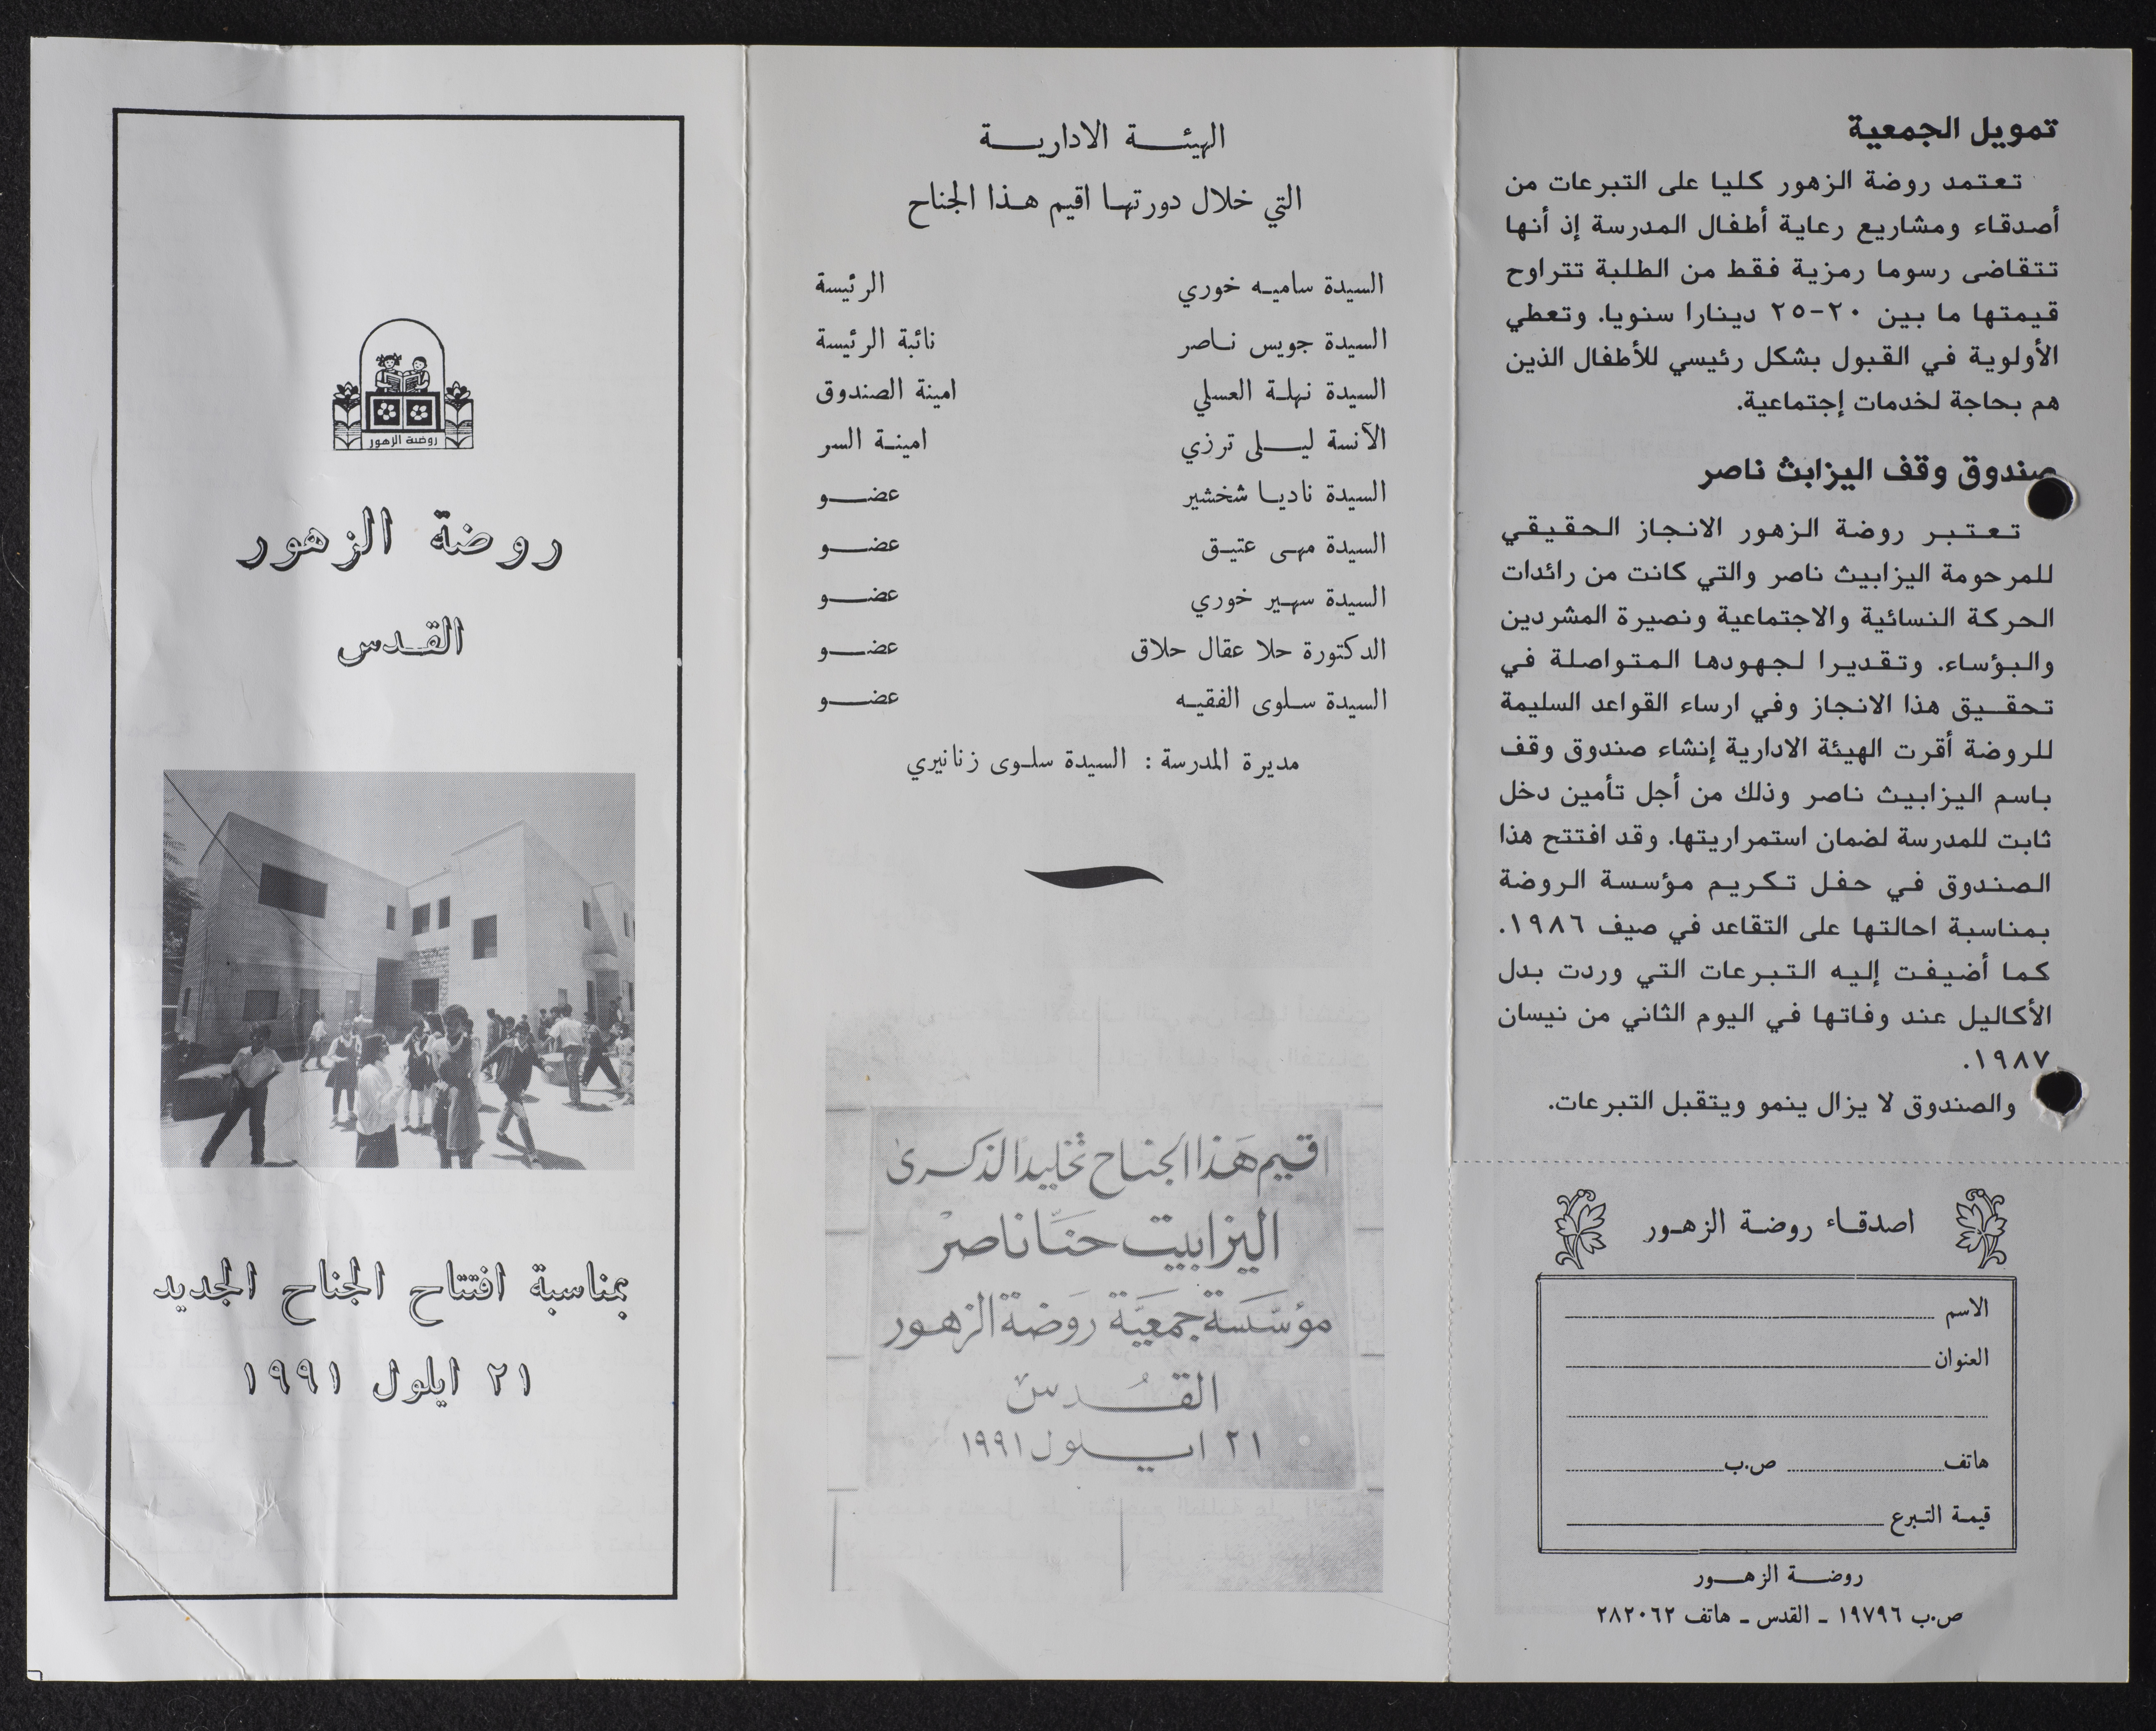 تمويل الجمعية
تعتمد روضة الزهور كليا على التبرعات من
أصدقاء ومشاريع رعاية أطفال المدرسة إذ أنها
تتقاضى رسوما رمزية فقط من الطلبة تتراوح
قيمتها ما بين ٢٠-٢٥ دينارا سنويا. وتعطي
الأولوية في القبول بشكل رئيسي للأطفال الذين
هم بحاجة لخدمات إجتماعية.
صندوق وقف اليزابث ناصر
تعتبر روضة الزهور الانجاز الحقيقي
للمرحومة اليزابيث ناصر والتي كانت من رائدات
الحركة النسائية والاجتماعية ونصيرة المشردين
والبؤساء. وتقديرا لجهودها المتواصلة في
تحقيق هذا الانجاز وفي ارساء القواعد السليمة
للروضة أقرت الهيئة الادارية إنشاء صندوق وقف
باسم اليزابيث ناصر وذلك من أجل تأمين دخل
ثابت للمدرسة لضمان استمراريتها. وقد افتتح هذا
الصندوق في حفل تكريم مؤسسة الروضة
بمناسبة احالتها على التقاعد في صيف ١٩٨٦.
كما أضيفت إليه التبرعات التي وردت بدل
الأكاليل عند وفاتها في اليوم الثاني من نيسان
١٩٨٧.
والصندوق لا يزال ينمو ويتقبل التبرعات.
اصدقاء روضة الزهور
الاسم
العنوان
هاتف ص.ب
قيمة التبرع
روضة الزهور
ص.ب ١٩٧٩٦ ـ القدس ـ هاتف ٢٨٢٠٦٢
الهيئة الادارية
التي خلال دورتها اقيم هذا الجناح
السيدة ساميه خوري الرئيسة
السيدة جويس ناصر نائبة الرئيسة
السيدة نهلة العسلي امينة الصندوق
الآنسة ليلى ترزي امينة السر
السيدة ناديا شخشير عضو
السيدة مهى عتيق عضو
السيدة سهير خوري عضو
الدكتورة حلا عقال حلاق عضو
السيدة سلوى الفقيه عضو
مديرة المدرسة : السيدة سلوى زنانيري
اقيم هَذا الجناح تخليداً لذكرى
اليزابيت حنَّا ناصر
مؤسَّسَة جَمعيَّة رَوضة الزهور
القُدس
٢١ ايلول ١٩٩١
روضة الزهور
روضة الزهور
القدس
بمناسبة افتتاح الجناح الجديد
٢١ ايلول ١٩٩١